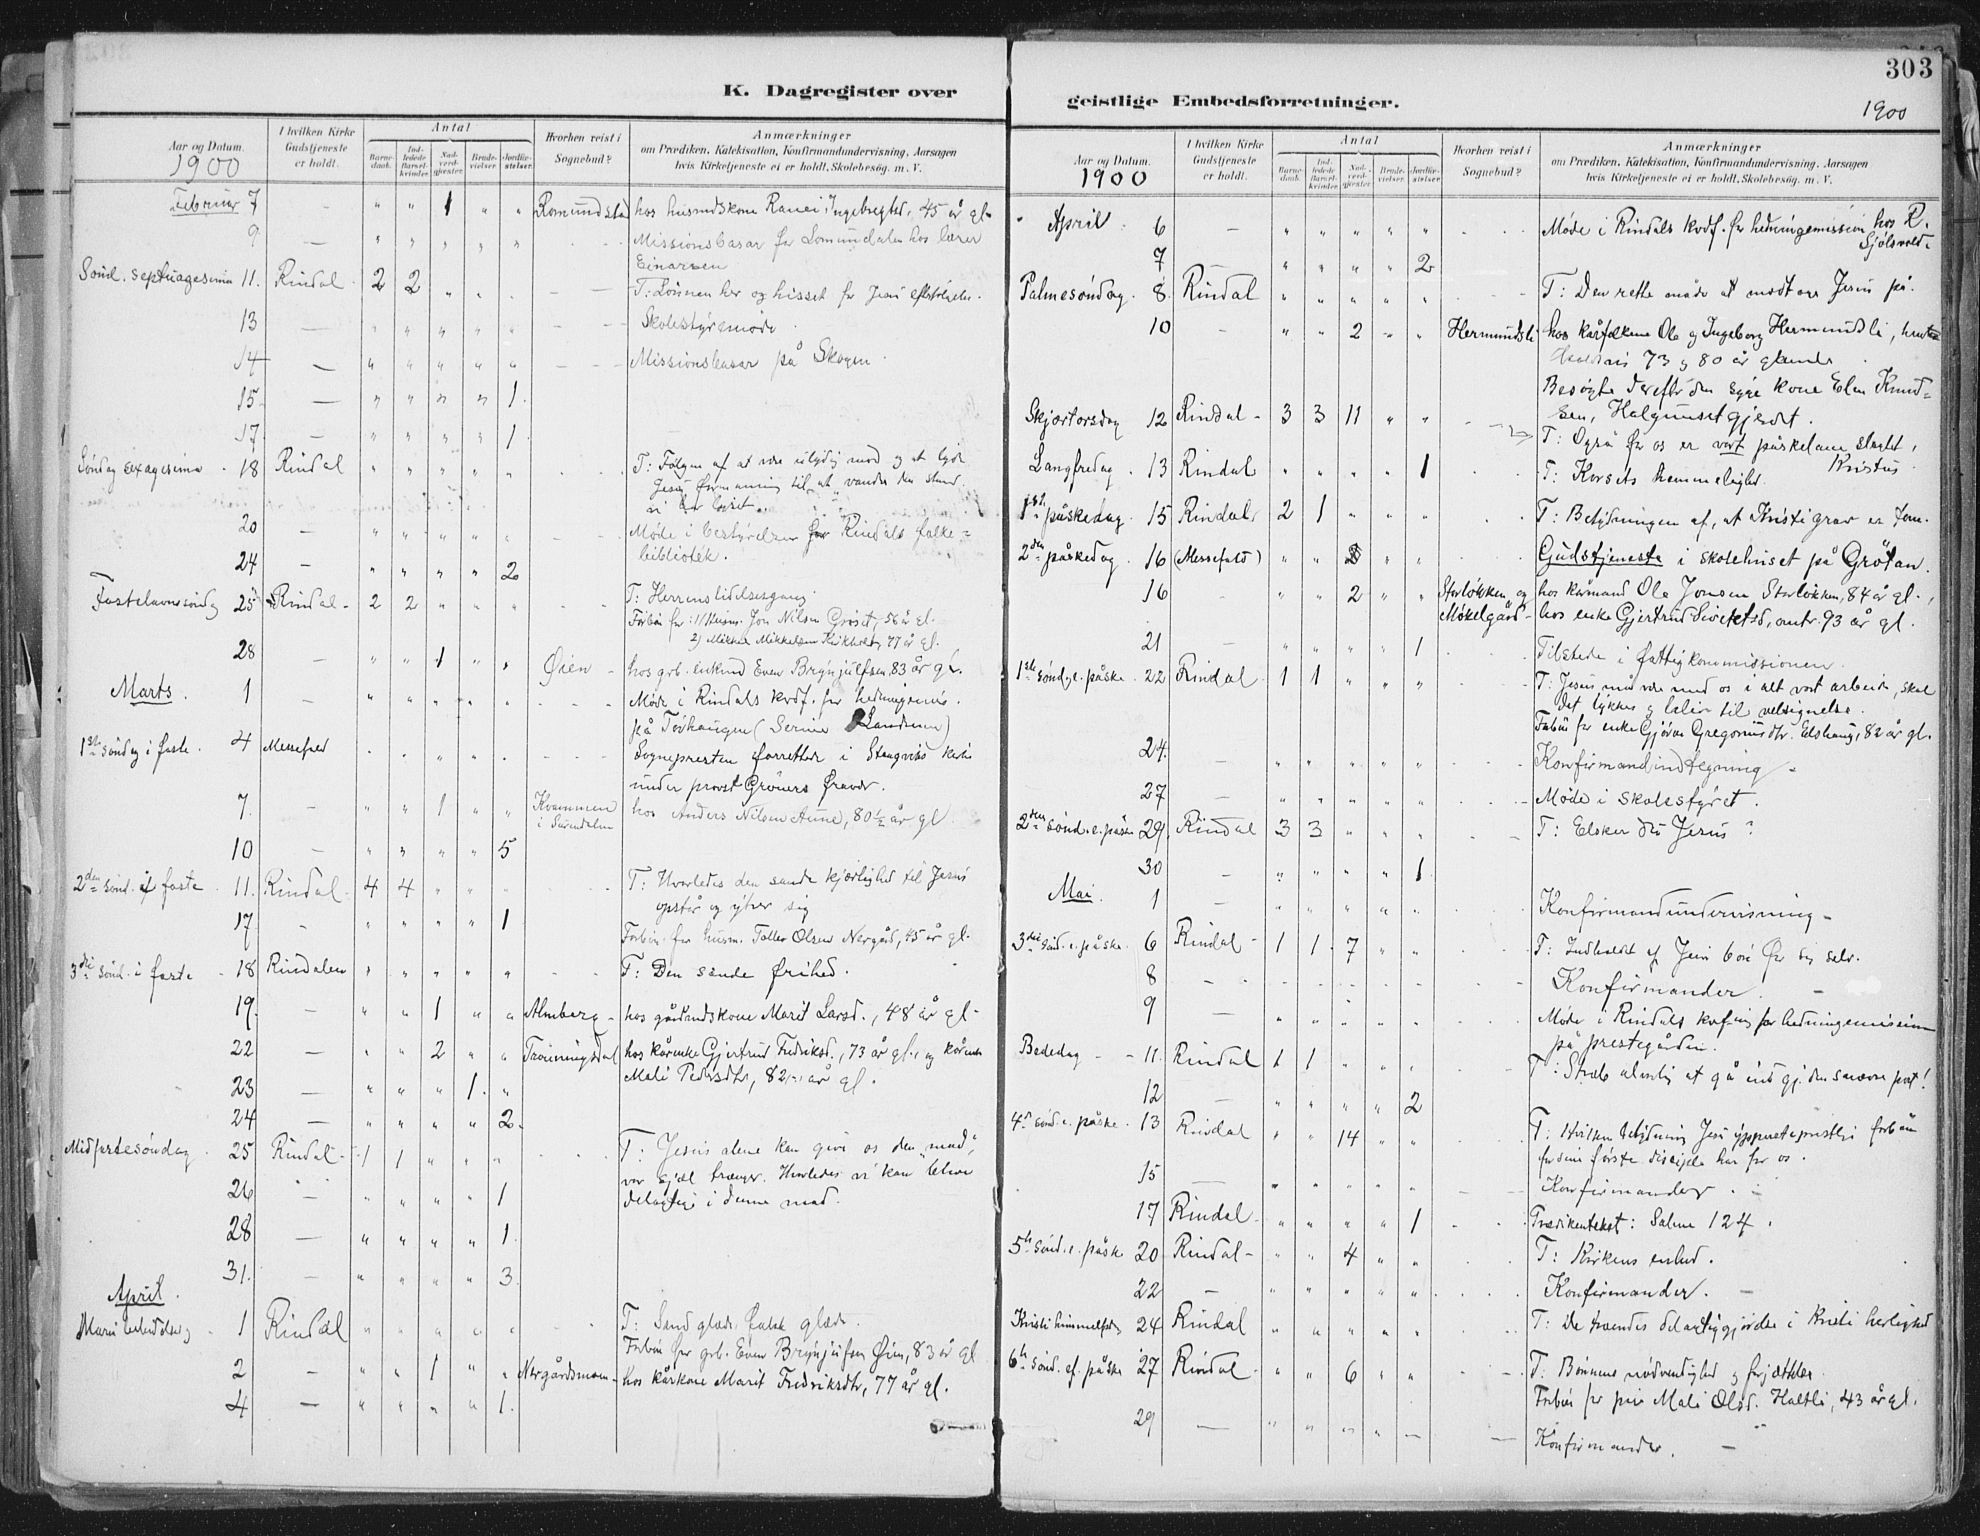 303
K. Dagregister over
geistlige Embedsforretninger.
1900
Aar og Datum.
1900
I hvilken Kirke Gudstjeneste er holdt.
Antal
Barnedaab.
Indledede Barselkvinder.
Nadverdgjæster.
Brudevielser.
Jordfæstelser.
Hvorhen reist i Sognebud?
Anmærkninger
om Prædiken, Katekisation, Konfirmandundervisning, Aarsagen
hvis Kirketjeneste ei er holdt, Skolebesøg. m. V.
Februar 7 - " " 1 " " Romundstad hos husmdskone Ranei Ingebregtsd., 45 år gl.
9 - " " " " " Missionsbasar for Lomundalen hos lærer
Einarsen
Sønd. septuagesima 11. Rindal 2 2 " " T: Lønnen her og hisset for Jesu
13 - " " " " " Skolestyremøde
14 - " " " " " Missionsbasar på Skogen.
15 - " " " " 1.
17 - " " " " 1.
Søndag sexagesima 18 Rindal " " " " " T: Følgen af at være ulydig mod og at lyde
Jesu formaning til at vandre
vi har lyset.
20 - " " " " " Møde i bestyrelsen for Rindals folke-
bibliotek.
24 - " " " " 2
Fastelavnssøndag 25 Rindal - 2 2 " " " T: Herrens lidelsesgang.
Forbøn for: 1) Husm. Jon Nilsen Grøset, 56 år gl.
2) Mikkel Mikkelsen Kirkholt, 77 år gl.
28 - " " 1 " " Øien - hos grb. enkemd Even Brynjulfsen, 83 år gl.
Marts. 1 - " " " " " Møde i Rindals kvdf. for hedningemis.
på Tørhaugen (Serine Landsem)
1ste søndag i faste. 4 Messefald Sognepresten forrettede i Stangvik kirke
under provst Grøners fravær.
7. - " " 1 " " Kvammen hos Anders Nilsen Aune, 80 1/2 år gl.
i Surendalen
10 - " " " " 5
2den sønd. i faste 11. Rindal - 4 4 " " " T: Hvorledes den sande kjærlighed til Jesus
opstår og ytrer sig
17 - " " " " 1 Forbøn for husm. Tøller Olsen Nergård, 45 år gl.
3die sønd. i faste - 18 Rindalen " " " " " T: Den sande frihed.
19. - " " 1 " " Almberg - hos gårdmandskone Marit Larsd., 48 år gl.
22 - " " 2 " " Trønningsdal hos kårenke Gjertrud Fredriksd., 73 år gl., og kårenke
23 - " " " 1. " Mali Pedersdtr, 82 år gl.
24 - " " " " 2.
Midfastesøndag 25 Rindal - 1 1 " " " T: Jesus alene kan give os den "mad",
vor sjæl trænger. Hvorledes vi kan blive
26 - " " " " 1 delagtig i denne mad.
28 - " " " " 1.
31. - " " " " 3.
April.
Mariæ bebudelsesdag 1 Rindal " " " " " T: Sand glæde falsk glæde.
Forbøn for grb. Even Brynjulfsen Øien, 83 år gl
2 - " " 1 " " Nergårdsmoen - hos kårkone Marit Fredriksdtr, 77 år gl.
4 - " " " " 1.
Aar og Datum.
1900
I hvilken Kirke Gudstjeneste er holdt.
Antal
Barnedaab.
Indledede Barselkvinder.
Nadverdgjæster.
Brudevielser.
Jordfæstelser.
Hvorhen reist i Sognebud?
Anmærkninger
om Prædiken, Katekisation, Konfirmandundervisning, Aarsagen
hvis Kirketjeneste ei er holdt, Skolebesøg. m. V.
April 6 - " " " " " Møde i Rindals kvdf. for hedningemission hos R.
Sjølsvold
7 - " " " " 2
Palmesøndag. 8. Rindal " " " " " T: Den rette måde at modtage Jesus på.
10 - " " 2 " " Hermundsli hos kårfolkene Ole og Ingeborg Hermundsli,
73 og 80 år gamle.
Besøgte derefter den syge kone Elen Knud-
sen, Halgunsetgjerdet.
Skjærtorsdag 12 Rindal - 3 3 11 " " T: Også for os er vort påskelam slagtet,
Kristus.
Langfredag. 13 Rindal " " " " 1 T: Korsets hemmelighed.
1ste påskedag. 15 Rindal 2 1 " " " T: Betydningen af, at Kristi grav er tom.
2den påskedag. 16 (Messefald) " " " " Gudstjeneste i skolehuset på Grøtan.
16 - " " 2 " " Storløkken og hos kårmand Ole Jonsen Storløkken, 84 år gl.,
Møkelgård - hos enke Gjertrud Sivertsd, omtr. 93 år gl.
21 - " " " " 1 Tilstede i fattigkommissionen.
1ste sønd. e. påske. 22 Rindal. 1 1 " " " T: Jesus må være med os i alt vort arbeide, skal
det lykkes og blive til velsignelse.
Forbøn for enke Gjøroe Gregoriusdtr. Elshaug, 82 år gl.
24. - " " " " " Konfirmandindtegning
27 - " " " " " Møde i skolestyret.
2den sønd. e. påske 29. Rindal 3 3 " " " T: Elsker du Jesus?
30 - " " " " 1.
Mai. 1 - " " " " " Konfirmandundervisning -
3die sønd. e. påske. 6 Rindal - 1 1. 7 " " T: Indholdet af Jesu bøn for sig selv.
8 - Konfirmander.
9 - " " " " " Møde i Rindals kvf-ing for hedningemission
på prestegården.
Bededag - - 11. Rindal 1 1 " " " T: Stræb alvorlig at gå ind gj. den snævre port!
12 - " " " " 2
4de sønd. e. påske. 13 Rindal " " 14 " " T: Hvilken betydning Jesu ypperstepræstlige forbøn
for sine første disciple har for os.
15 - " " " " " Konfirmander.
17 Rindal " " " " 1 Prædikentekst: Salme 124.
5te sønd. e. påske 20 Rindal - " " 4 " " T: Kirkens enhed.
22 - " " " " " Konfirmander.
Kristi himmelfartsdag 24 Rindal " " " " " T: De troendes delagtiggjørelse i Kristi herlighed
6te sønd. ef. påske 27 Rindal - " " 6 " " T: Bønnens nødvendighed og forjættelse.
Forbøn for pige Mali Olsd. Haltli, 43 år gl.
29 - " " " " - Konfirmander.